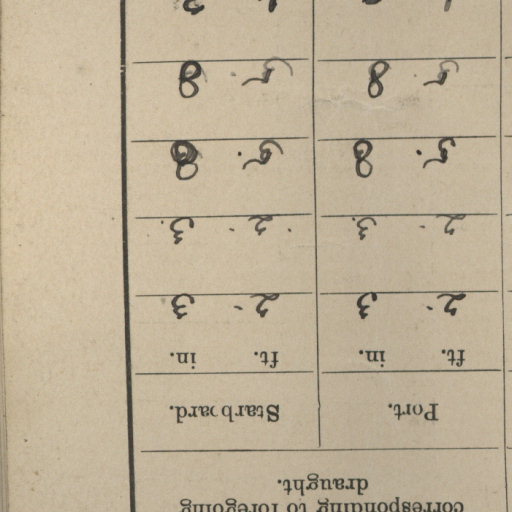 corresponding to foregoing
draught.
Port. Starboard.
ft. in. ft. in.
2. 3 2. 3
2. 3. 2. 3.
5. 8 5. 8
5. 8 5. 8